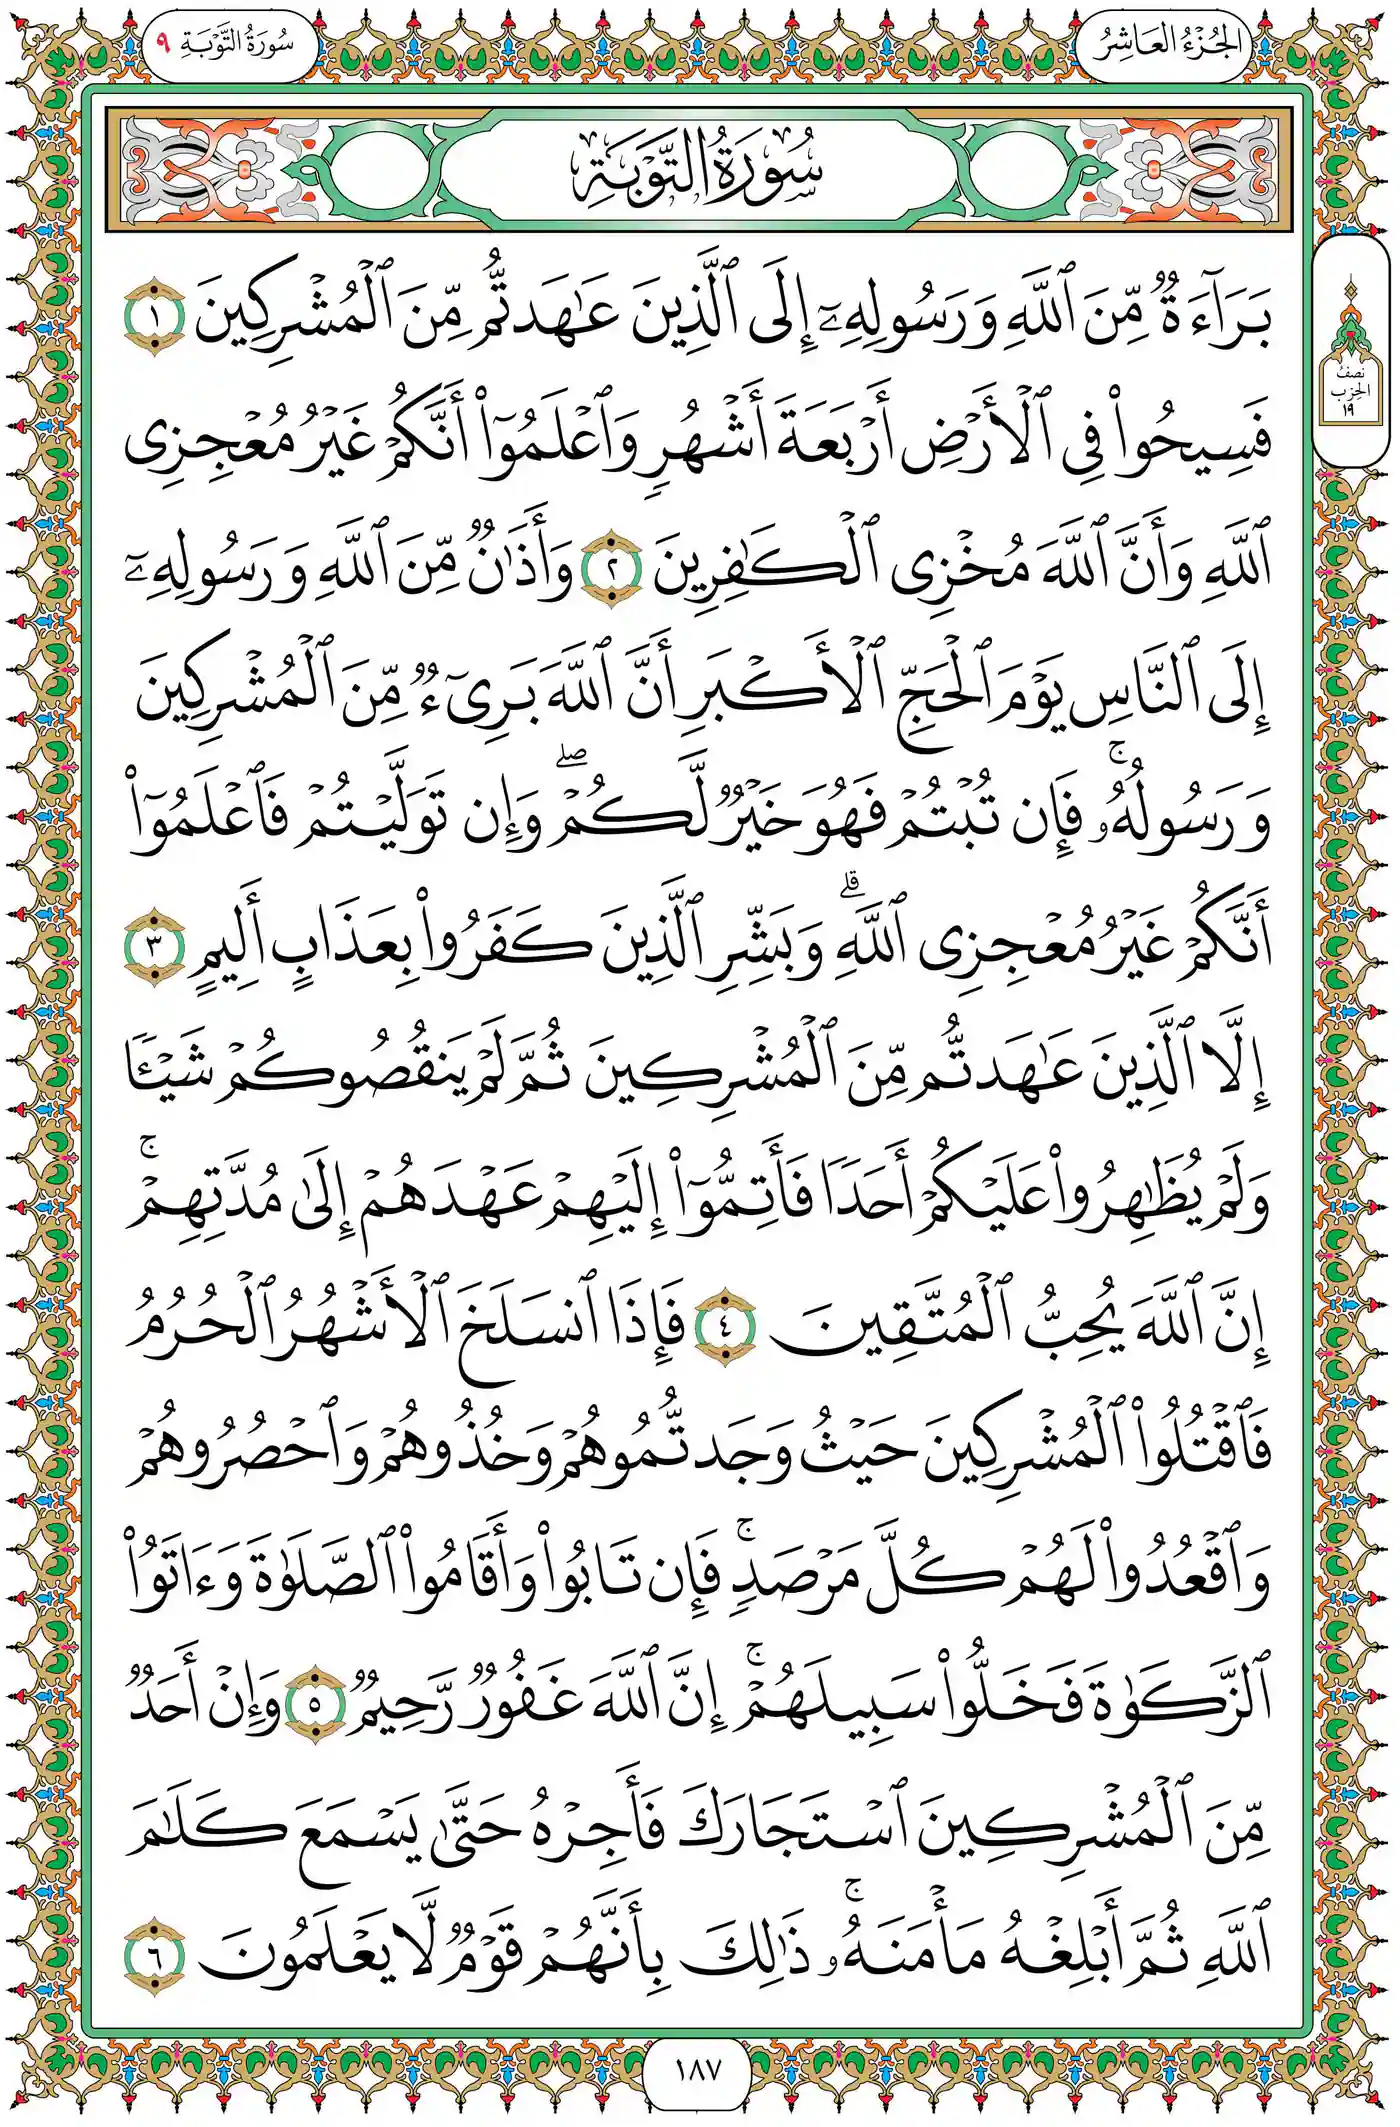 الجُزْءُ العَاشِرُ
سُورَةُ التَّوْبَةِ ٩
سُورَةُ التَّوْبَةِ
نصف
الحزب
١٩
بَرَآءَةٌ مِّنَ ٱللَّهِ وَرَسُولِهِۦٓ إِلَى ٱلَّذِينَ عَٰهَدتُّم مِّنَ ٱلْمُشْرِكِينَ ١
فَسِيحُوا۟ فِى ٱلْأَرْضِ أَرْبَعَةَ أَشْهُرٍ وَٱعْلَمُوٓا۟ أَنَّكُمْ غَيْرُ مُعْجِزِى
ٱللَّهِ وَأَنَّ ٱللَّهَ مُخْزِى ٱلْكَٰفِرِينَ ٢ وَأَذَٰنٌ مِّنَ ٱللَّهِ وَرَسُولِهِۦٓ
إِلَى ٱلنَّاسِ يَوْمَ ٱلْحَجِّ ٱلْأَكْبَرِ أَنَّ ٱللَّهَ بَرِىٓءٌ مِّنَ ٱلْمُشْرِكِينَ
وَرَسُولُهُۥ ۚ فَإِن تُبْتُمْ فَهُوَ خَيْرٌ لَّكُمْ ۖ وَإِن تَوَلَّيْتُمْ فَٱعْلَمُوٓا۟
أَنَّكُمْ غَيْرُ مُعْجِزِى ٱللَّهِ ۗ وَبَشِّرِ ٱلَّذِينَ كَفَرُوا۟ بِعَذَابٍ أَلِيمٍ ٣
إِلَّا ٱلَّذِينَ عَٰهَدتُّم مِّنَ ٱلْمُشْرِكِينَ ثُمَّ لَمْ يَنقُصُوكُمْ شَيْـًٔا
وَلَمْ يُظَٰهِرُوا۟ عَلَيْكُمْ أَحَدًا فَأَتِمُّوٓا۟ إِلَيْهِمْ عَهْدَهُمْ إِلَىٰ مُدَّتِهِمْ ۚ
إِنَّ ٱللَّهَ يُحِبُّ ٱلْمُتَّقِينَ ٤ فَإِذَا ٱنسَلَخَ ٱلْأَشْهُرُ ٱلْحُرُمُ
فَٱقْتُلُوا۟ ٱلْمُشْرِكِينَ حَيْثُ وَجَدتُّمُوهُمْ وَخُذُوهُمْ وَٱحْصُرُوهُمْ
وَٱقْعُدُوا۟ لَهُمْ كُلَّ مَرْصَدٍ ۚ فَإِن تَابُوا۟ وَأَقَامُوا۟ ٱلصَّلَوٰةَ وَءَاتَوُا۟
ٱلزَّكَوٰةَ فَخَلُّوا۟ سَبِيلَهُمْ ۚ إِنَّ ٱللَّهَ غَفُورٌ رَّحِيمٌ ٥ وَإِنْ أَحَدٌ
مِّنَ ٱلْمُشْرِكِينَ ٱسْتَجَارَكَ فَأَجِرْهُ حَتَّىٰ يَسْمَعَ كَلَٰمَ
ٱللَّهِ ثُمَّ أَبْلِغْهُ مَأْمَنَهُۥ ۚ ذَٰلِكَ بِأَنَّهُمْ قَوْمٌ لَّا يَعْلَمُونَ ٦
١٨٧